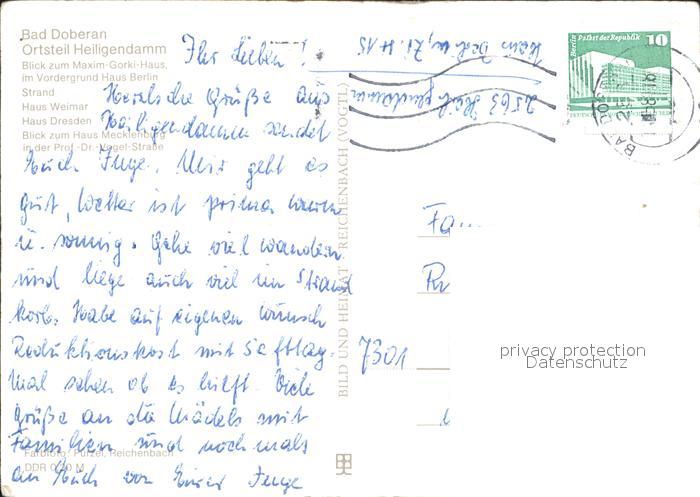 Bad Doberan
Ortsteil Heiligendamm
Blick zum Maxim-Gorki-Haus,
im Vordergrund Haus Berlin
Strand
Haus Weimar
Haus Dresden
Blick zum Haus Mecklenburg
in der Prof.-Dr.-Vogel-Straße
Ihr Lieben!
Herzliche Grüße aus
Heiligendamm sendet
Euch Inge. Mir geht es
gut, Wetter ist prima warm
u. sonnig. Gehe viel wandern
und liege auch viel im Strand
korb. Habe auf eigenen Wunsch
Reduktionskost mit Safttag.
Mal sehen ob es hilft. Viele
Grüße an die Mädels mit
Familien und nochmals
an Euch von Eurer Inge
Farbfoto: Purzel, Reichenbach
DDR 0,20 M
BILD UND HEIMAT REICHENBACH (VOGTL)
2563 Heiligendamm
Berlin, Palast der Republik
10
DDR
BAD DO
Fa
7301
privacy protection
Datenschutz